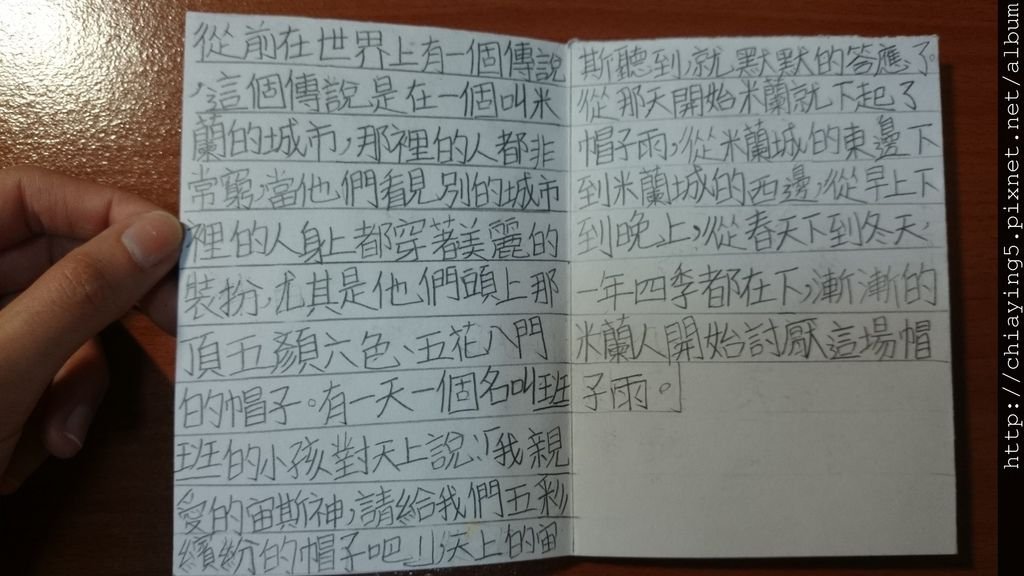 從前在世界上有一個傳說
,這個傳說是在一個叫米
蘭的城市,那裡的人都非
常窮,當他,們看見別的城市
裡的人身上都穿著美麗的
裝扮,尤其是他們頭上那
頂五顏六色、五花八門
的帽子。有一天一個名叫班
班的小孩對天上說:「我親
愛的宙斯神,請給我們五彩
繽紛的帽子吧!」,天上的宙
斯聽到,就默默的答應了。
從那天開始米蘭就下起了
帽子雨,從米蘭城的東邊下
到米蘭城的西邊,從早上下
到晚上,從春天下到冬天,
一年四季都在下,漸漸的
米蘭人開始討厭這場帽
子雨。
http://chiaying5.pixnet.net/album